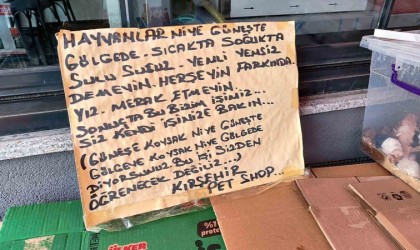 HAYVANLAR NİYE GÜNEŞTE
GÖLGEDE - SICAKTA SOĞUKTA
SULU SUSUZ - YEMLİ YEMSİZ
DEMEYİN. HERŞEYİN FARKINDA
YIZ. MERAK ETMEYİN...
SONUÇTA BU BİZİM İŞİMİZ...
SİZ KENDİ İŞİNİZE BAKIN...
(GÜNEŞE KOYSAK NİYE GÜNEŞTE
GÖLGEYE KOYSAK NİYE GÖLGEDE
DİYORSUNUZ. BU İŞİ SİZDEN
ÖĞRENECEK DEĞİLİZ...)
KIRŞEHİR
PET SHOP...
ÜLKER